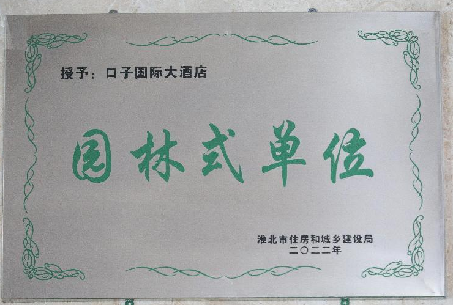 授予：口子国际大酒店
园林式单位
淮北市住房和城乡建设局
二〇二二年